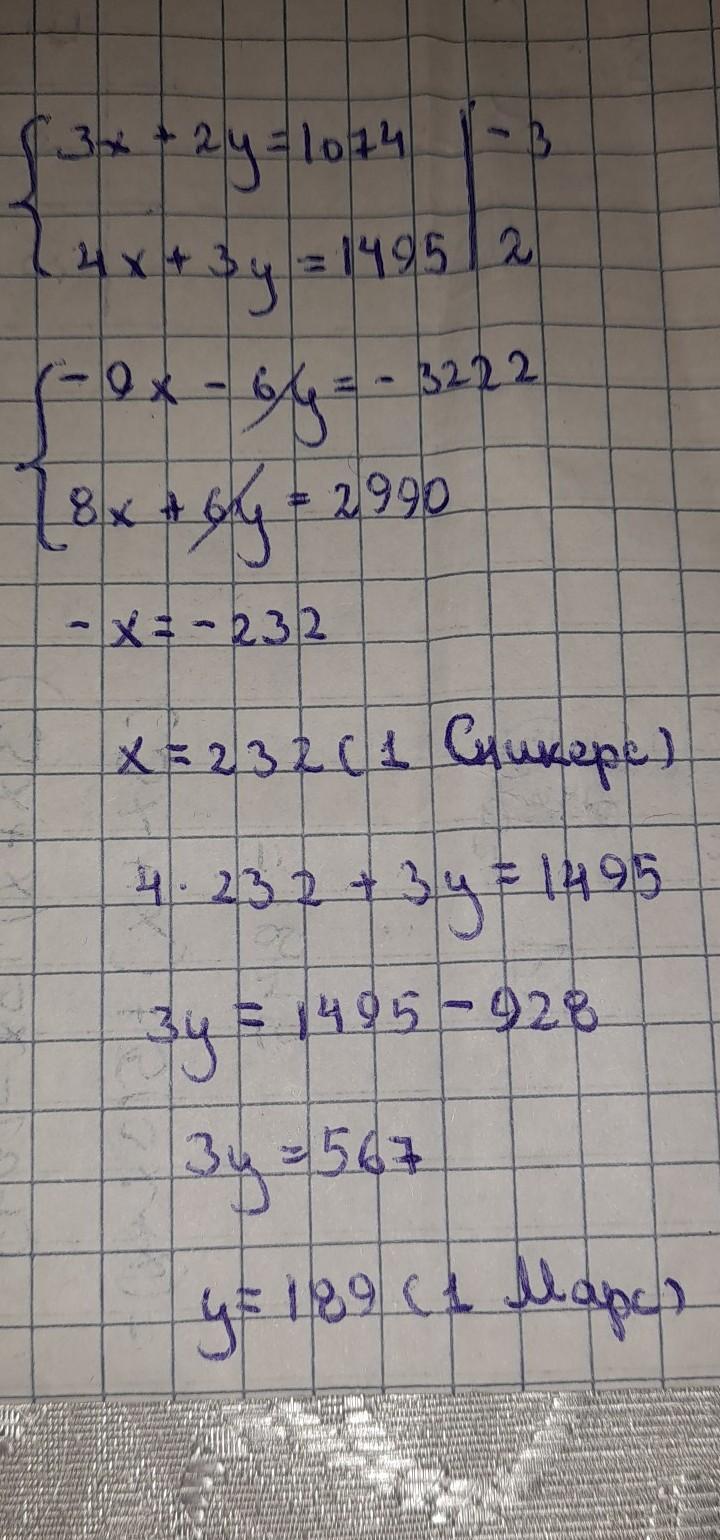 3x + 2y = 1074 | - 3
4x + 3y = 1495 | 2
- 9x - 6y = - 3222
8x + 6y = 2990
- x = - 232
x = 232 ( 1 Сникерс)
4 · 232 + 3y = 1495
3y = 1495 - 928
3y = 567
y = 189 ( 1 Марс)